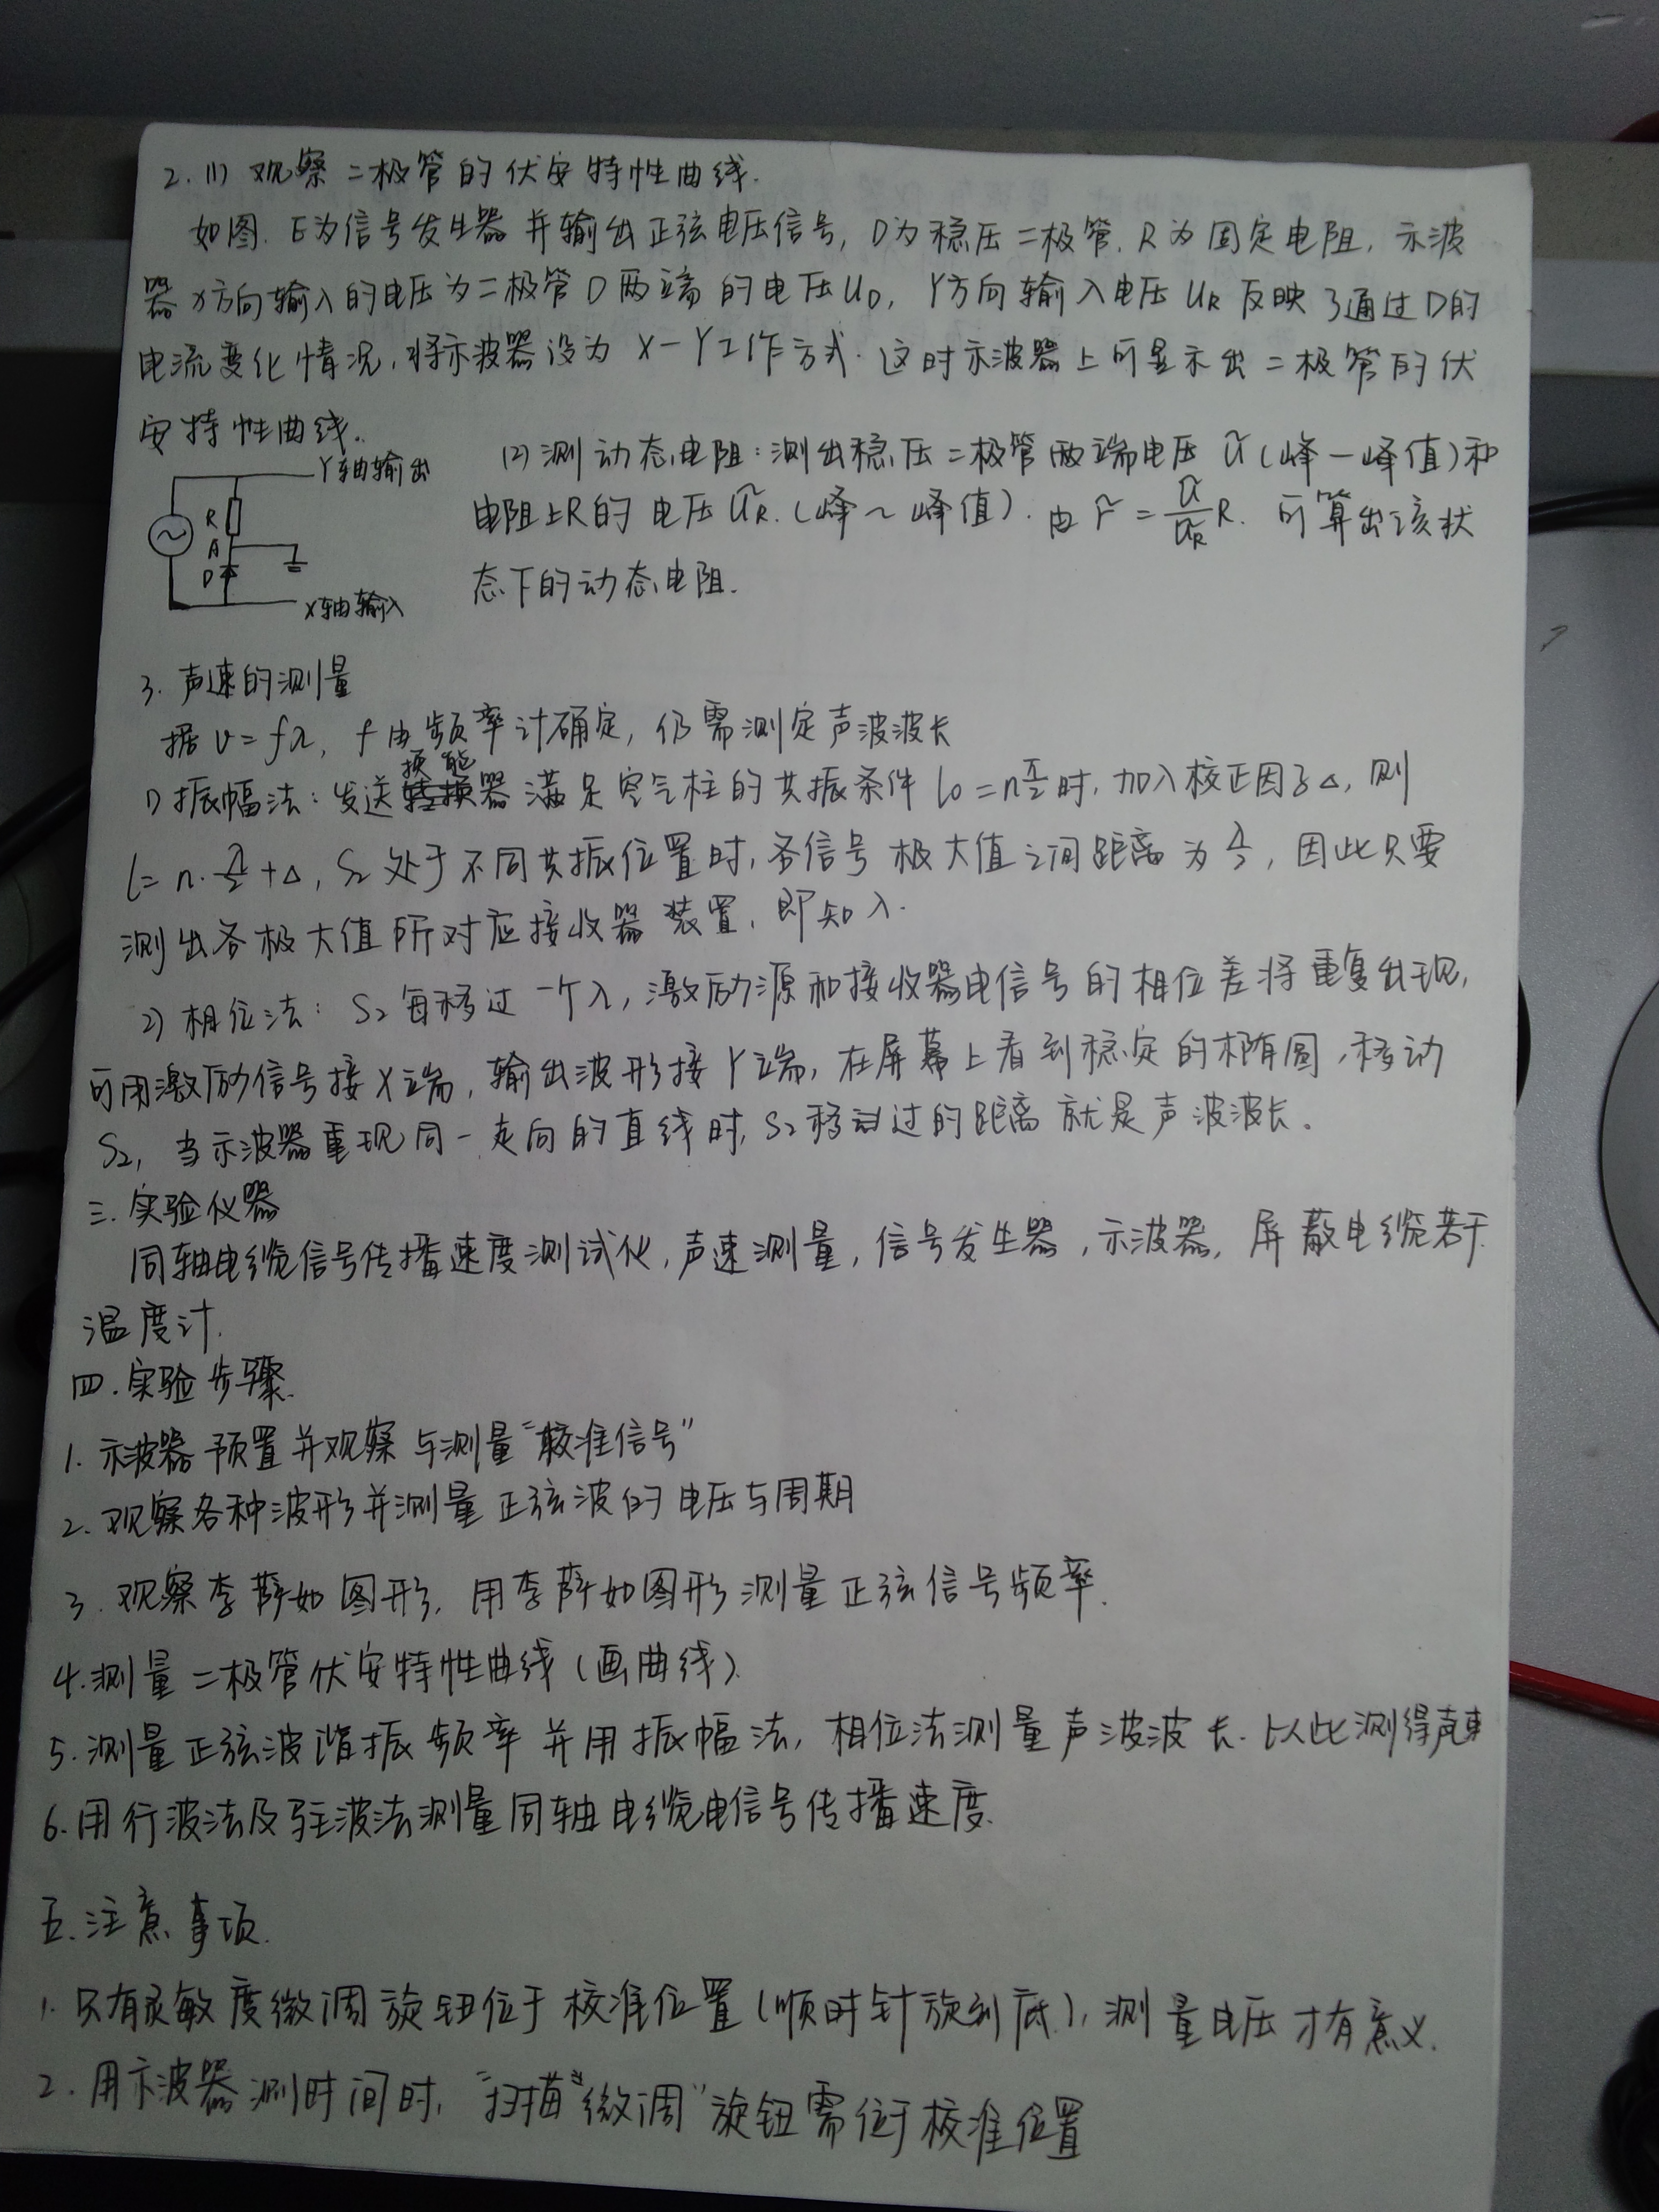 2. (1) 观察二极管的伏安特性曲线.
如图. E为信号发生器并输出正弦电压信号, D为稳压二极管. R为固定电阻, 示波
器X方向输入的电压为二极管D两端的电压U_D, Y方向输入电压U_R反映了通过D的
电流变化情况, 将示波器设为X-Y工作方式. 这时示波器上可显示出二极管的伏
安特性曲线.
Y轴输出
R
A
D
X轴输入
(2) 测动态电阻: 测出稳压二极管两端电压 Ũ (峰-峰值) 和
电阻上R的电压Ũ_R. (峰~峰值). 由 r̃ = Ũ/Ũ_R R. 可算出该状
态下的动态电阻.
3. 声速的测量
据 v=fλ, f由频率计确定, 仍需测定声波波长
1) 振幅法: 发送换能器满足空气柱的共振条件 l₀=n λ/2 时, 加入校正因子Δ, 则
l=n·λ/2+Δ, S₂处于不同共振位置时, 各信号极大值之间距离为λ/2, 因此只要
测出各极大值所对应接收器装置, 即知λ.
2) 相位法: S₂每移过一个λ, 激励源和接收器电信号的相位差将重复出现,
可用激励信号接X端, 输出波形接Y端, 在屏幕上看到稳定的椭圆, 移动
S₂, 当示波器重现同一走向的直线时, S₂移动过的距离就是声波波长.
三. 实验仪器
同轴电缆信号传播速度测试仪, 声速测量, 信号发生器, 示波器, 屏蔽电缆若干
温度计.
四. 实验步骤.
1. 示波器预置并观察与测量"校准信号"
2. 观察各种波形并测量正弦波的电压与周期
3. 观察李萨如图形, 用李萨如图形测量正弦信号频率.
4. 测量二极管伏安特性曲线 (画曲线)
5. 测量正弦波谐振频率并用振幅法, 相位法测量声波波长. 以此测得声速
6. 用行波法及驻波法测量同轴电缆电信号传播速度.
五. 注意事项.
1. 只有灵敏度微调旋钮位于校准位置 (顺时针旋到底), 测量电压才有意义.
2. 用示波器测时间时, "扫描"微调"旋钮需位于校准位置